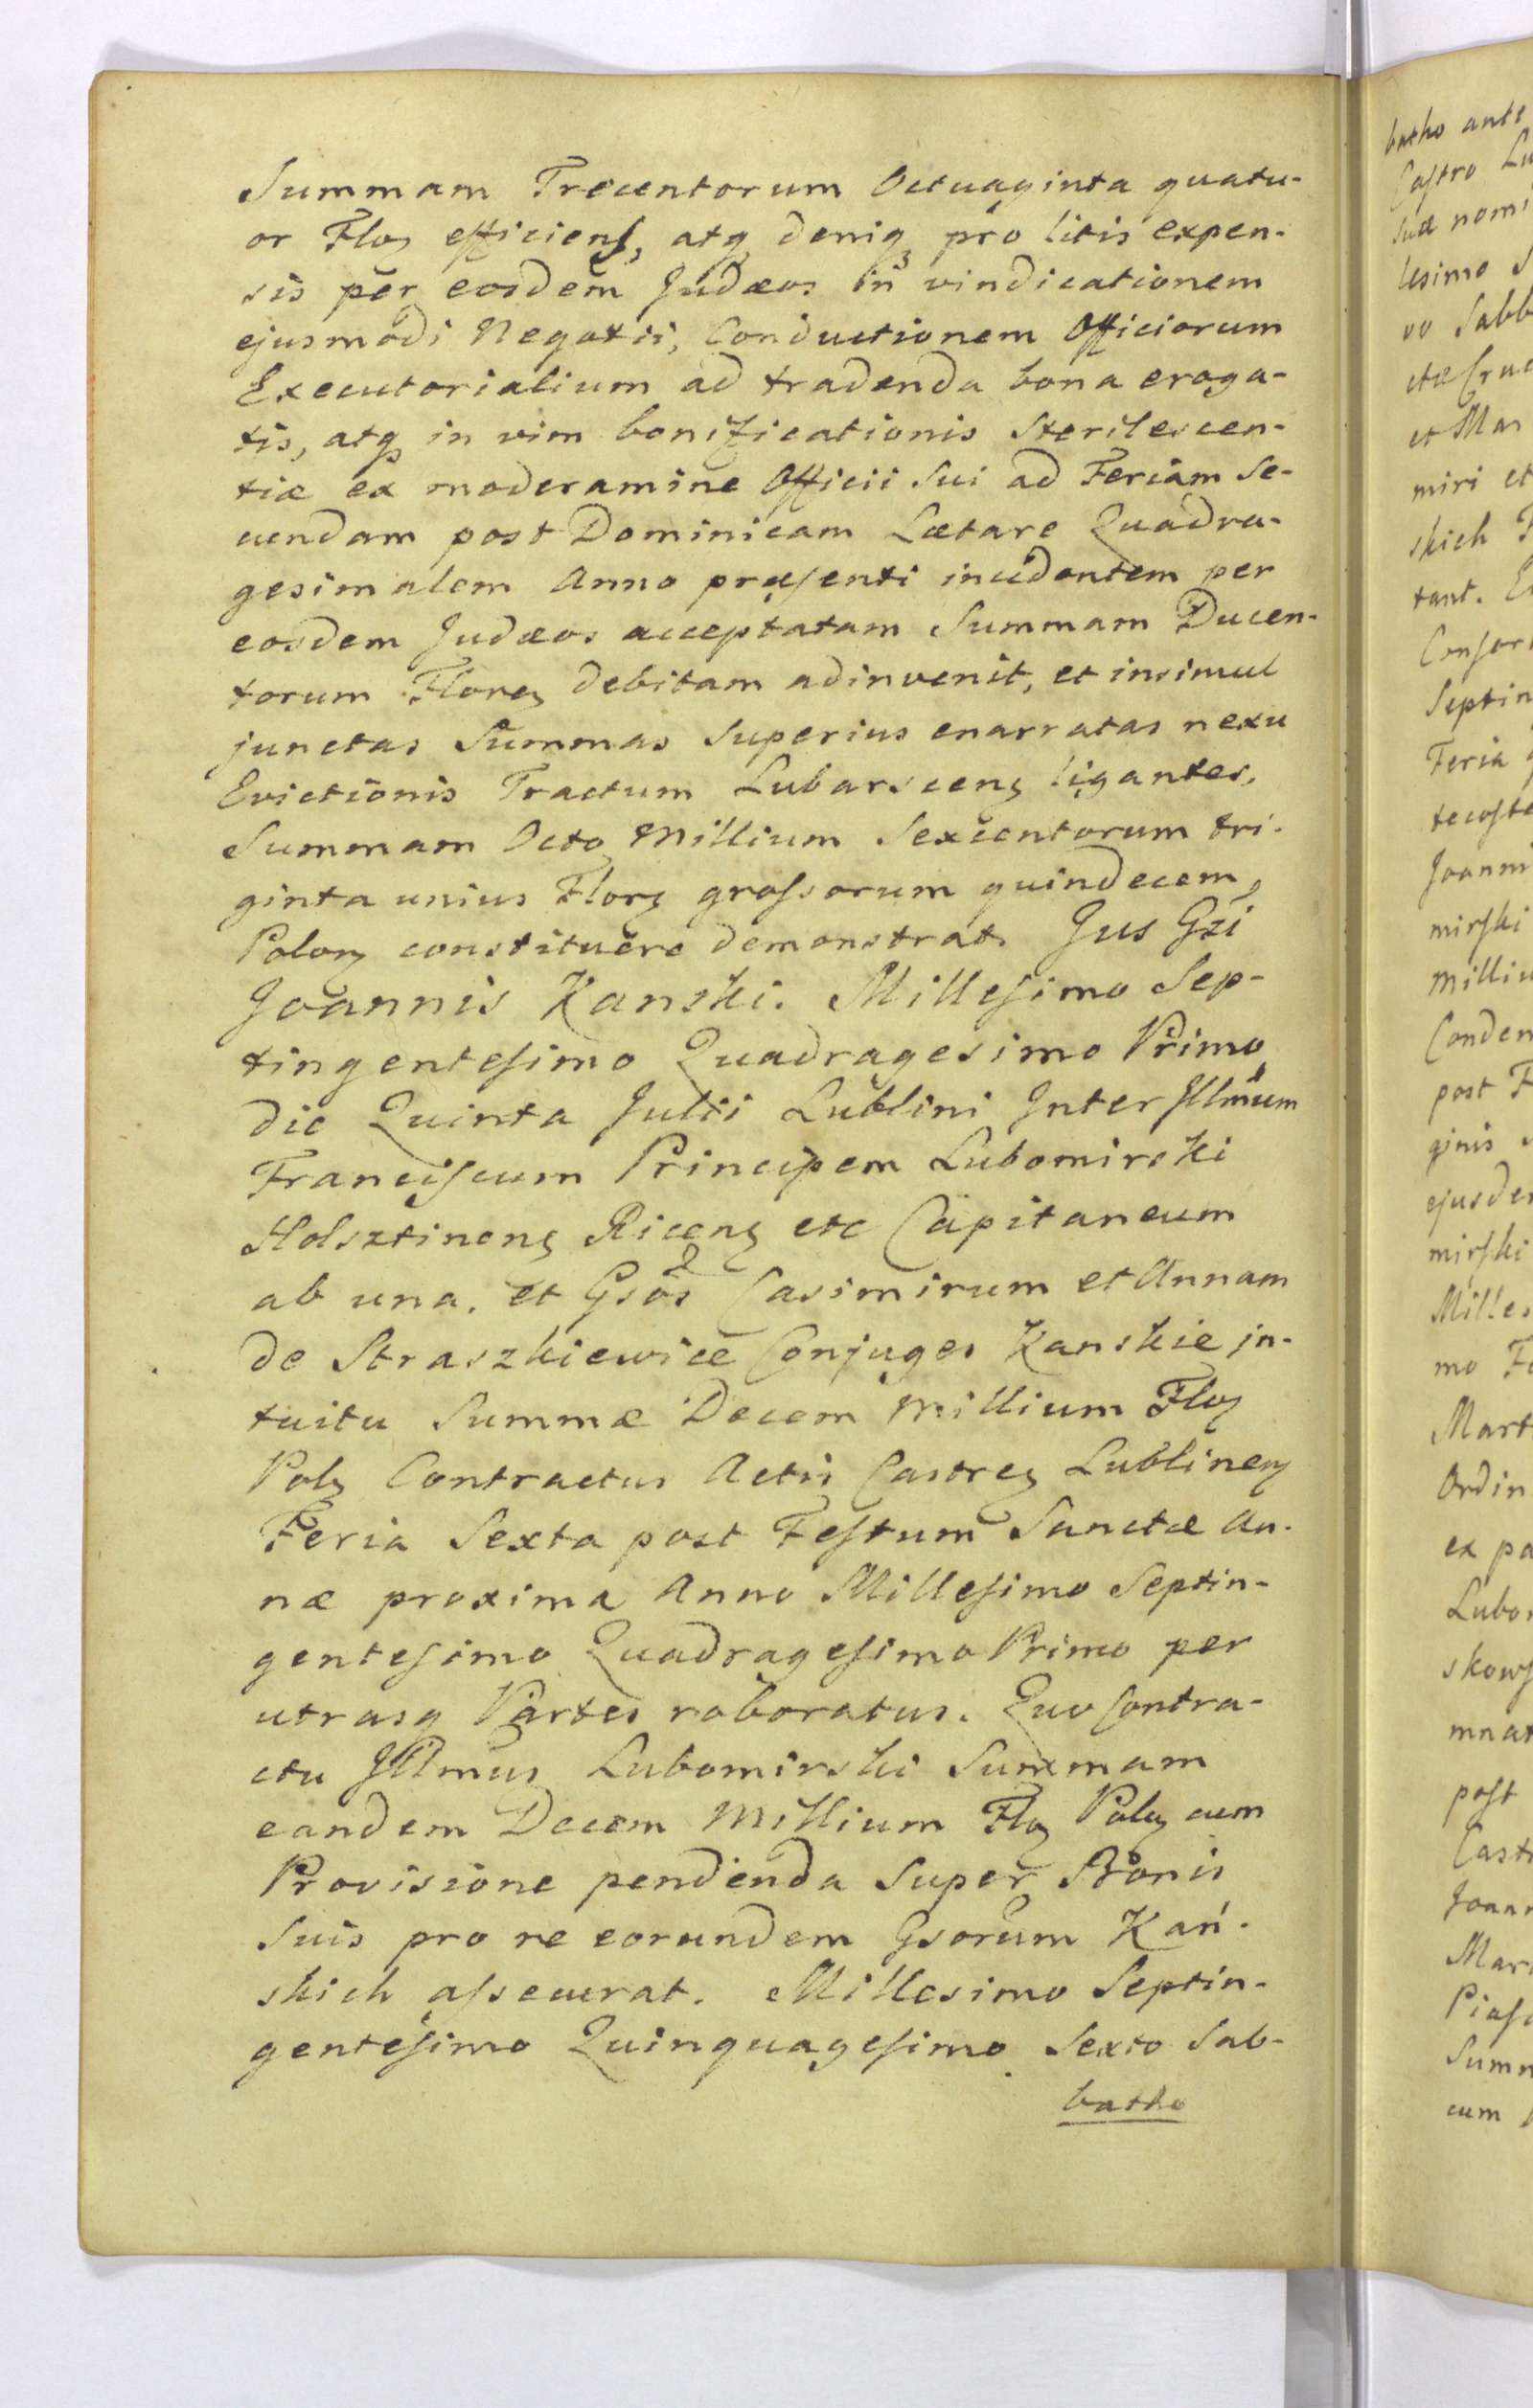 Summam Trecentorum Octuaginta quatu-
or Floꝫ efficienſ, atqꝫ deniqꝫ pro litis expen-
sis per eosdem Judæos in vindicationem
ejusmodi Negotii, Conductionem Officiorum
Executorialium ad tradenda bona eroga-
tis, atqꝫ in vim bonificationis Sterilescen-
tiæ ex moderamine Officii Sui ad Feriam Se-
cundam post Dominicam Lætare Quadra-
gesimalem Anno præſenti incidentem per
eosdem Judæos acceptatam Summam Ducen-
torum Floreꝫ debitam adinvenit, et insimul
junctas Summas Superius enarratas nexu
Evictionis Tractum Lubarscenꝫ ligantes,
Summam Octo Millium Sexcentorum tri-
ginta unius Florꝫ groſsorum quindecem,
Polonꝫ constituere demonstrat. Jus Gzi
Joannis Kanski. Milleſimo Sep-
tingenteſimo Quadragesimo Primo
die Quinta Julii Lublini Inter Jllmum
Franciſcum Principem Lubomirski
Holsztinenꝫ Ricenꝫ etc Capitaneum
ab una, et Gsos Casimirum et Annam
de Straszkiewice Conjuges Kanskie in-
tuitu Summæ Decem Millium Floꝫ
Polꝫ Contractus Actis Castreꝫ Lublineꝫ
Feria Sexta post Feſtum Sanctæ An-
næ proxima Anno Milleſimo Septin-
genteſimo Quadrageſimo Primo per
utrasqꝫ Partes roboratus. Quo Contra-
ctu Jllmus Lubomirski Summam
eandem Decem Millium Floꝫ Polꝫ cum
Provisione pendenda Super Bonis
Suis pro re eorundem Gsorum Kań-
skich aſsecurat. Millesimo Septin-
genteſimo Quinquageſimo Sexto Sab-
batho
batho ante
Caſtro Lu
suæ nomi
lesimo S
vo Sabb
ctæ Cruc
et Mar
miri et
skich
tant.
Conſor
Septin
Feria
tecoſte
Joanni
mirſki
Milliu
Conden
post F
ginis
ejusdem
mirſki
Milles
mo Fe
Mart
Ordin
ex pa
Lubo
skowſ
mnat
poſt
Castr
Joann
Mar
Piaſ
Summ
cum